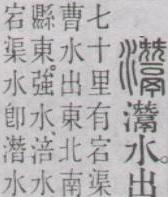 灊灊水。出
七十里有宕渠
曹水出東北南
縣東強水、涪水
宕渠水卽潛水